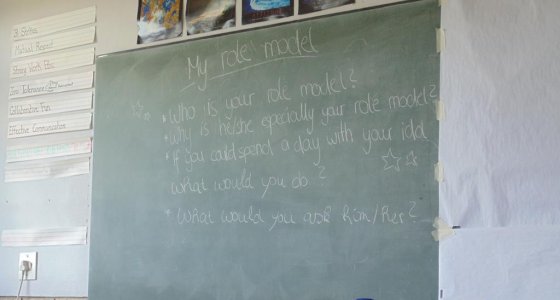 My role model
* Who is your role model?
* Why is he/she especially your role model?
* if you could spend a day with your idol
what would you do?
* What would you ask him/her?
Mutual Respect
Strong Work Ethic
Zero Tolerance
Collaborative Fun
Effective Communication